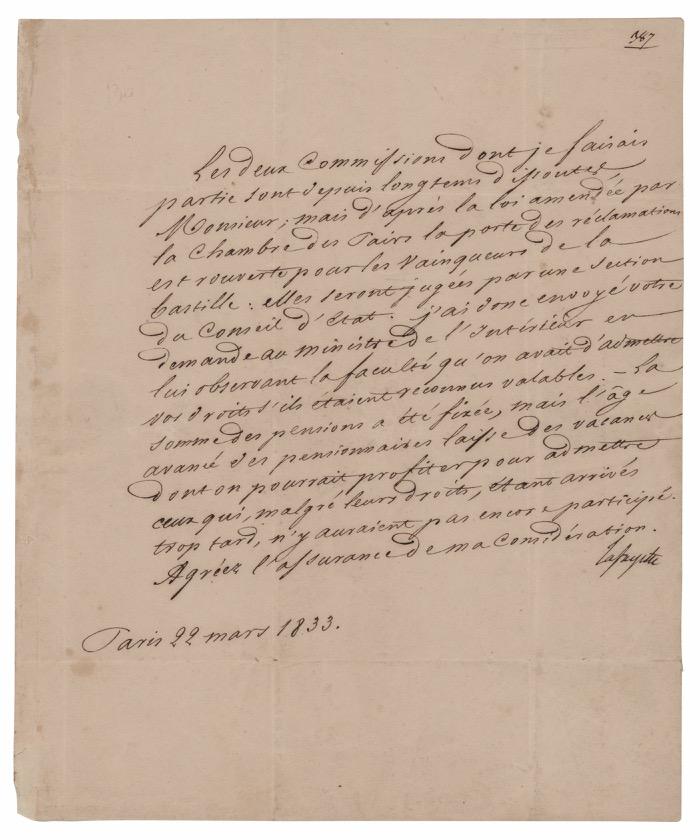 387
Les deux Commissions dont je faisais
partie sont depuis longtems dissoutes
Monsieur; mais d'après la loi amendée par
la Chambre des Pairs la porte des réclamations
est rouverte pour les Vainqueurs de la
bastille: elles seront jugées par une Section
du Conseil d'Etat. j'ai donc envoyé votre
demande au ministre de l'Intérieur en
lui observant la faculté qu'on avait d'admettre
vos droits s'ils étaient reconnus valables. - La
somme des pensions a été fixée, mais l'âge
avancé des pensionnaires laisse des vacances
dont on pourrait profiter pour admettre
ceux qui, malgré leurs droits, étant arrivés
trop tard, n'y auraient pas encore participé.
Agréez l'assurance de ma Considération.
Lafayette
Paris 22 mars 1833.